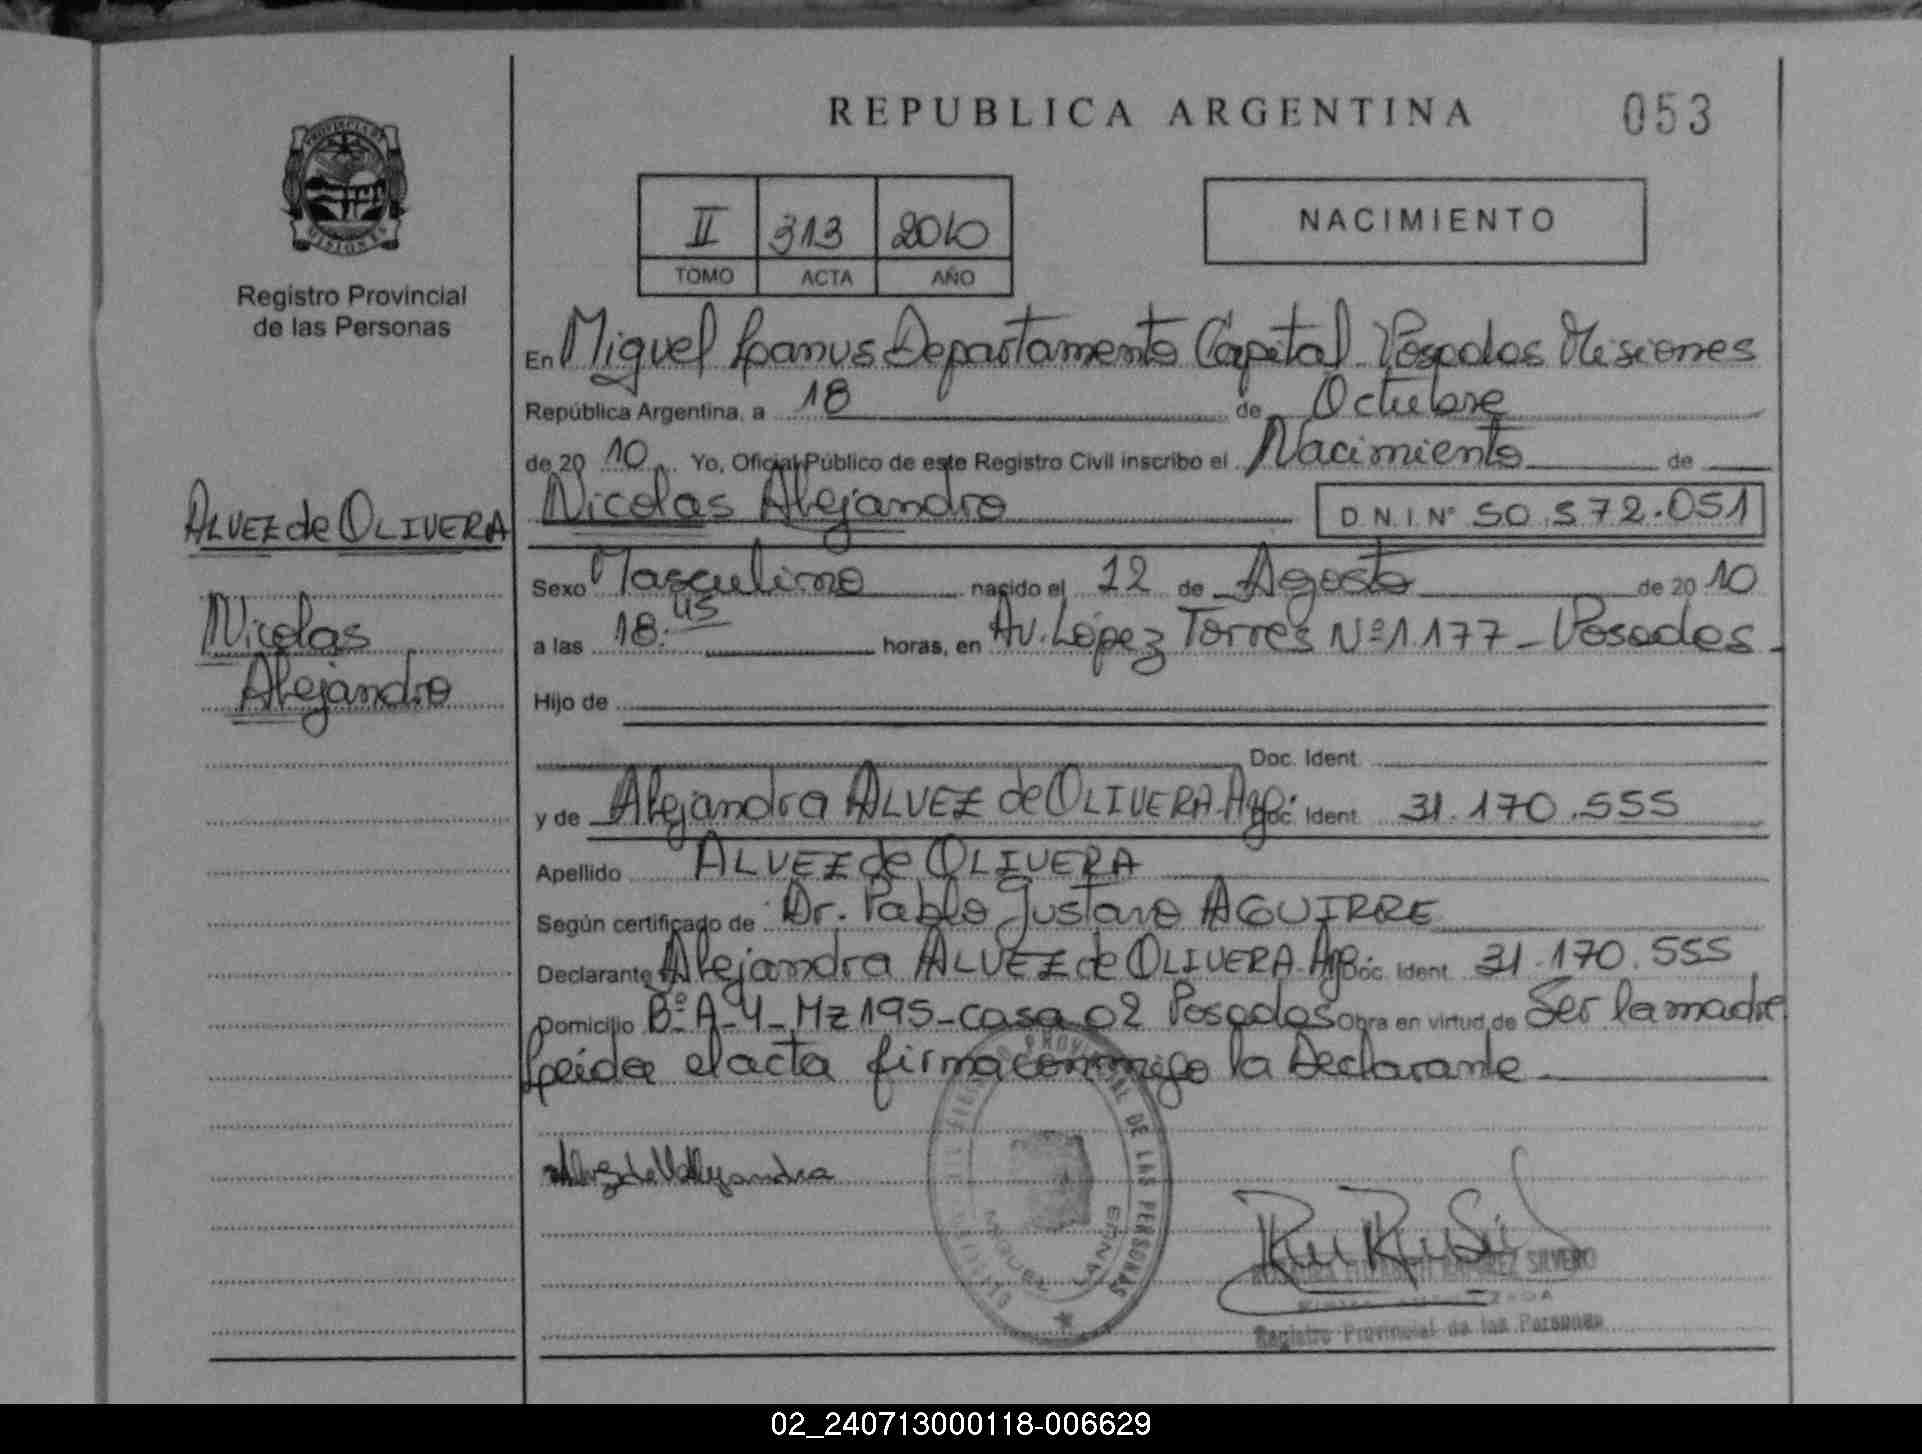 REPUBLICA ARGENTINA
053
PROVINCIA DE
MISIONES
Registro Provincial
de las Personas
II 313 2010
TOMO ACTA AÑO
NACIMIENTO
En Miguel Lanus Departamento Capital Posadas Misiones
República Argentina, a 18 de Octubre
de 20 10 Yo, Oficial Público de este Registro Civil inscribo el Nacimiento de
Nicolas Alejandro
D N I Nº 50.572.051
ALVEZ de OLIVERA
Nicolas
Alejandro
Sexo Masculino nacido el 12 de Agosto de 20 10
a las 18:45 horas, en Av. López Torres Nº 1.177 - Posadas -
Hijo de
Doc. Ident.
y de Alejandra ALVEZ de OLIVERA. Arg. Doc. Ident. 31.170.555
Apellido ALVEZ de OLIVERA
Según certificado de Dr. Pablo Gustavo AGUIRRE
Declarante Alejandra ALVEZ de OLIVERA Arg. Doc. Ident. 31.170.555
Domicilio Bº A-4-Mz 195-casa 02 Posadas Obra en virtud de Ser la madre
Leida el acta firma conmigo la Declarante
REGISTRO PROVINCIAL DE LAS PERSONAS
MIGUEL LANUS
RAMIREZ SILVERO
Registro Provincial de las Personas
02_240713000118-006629